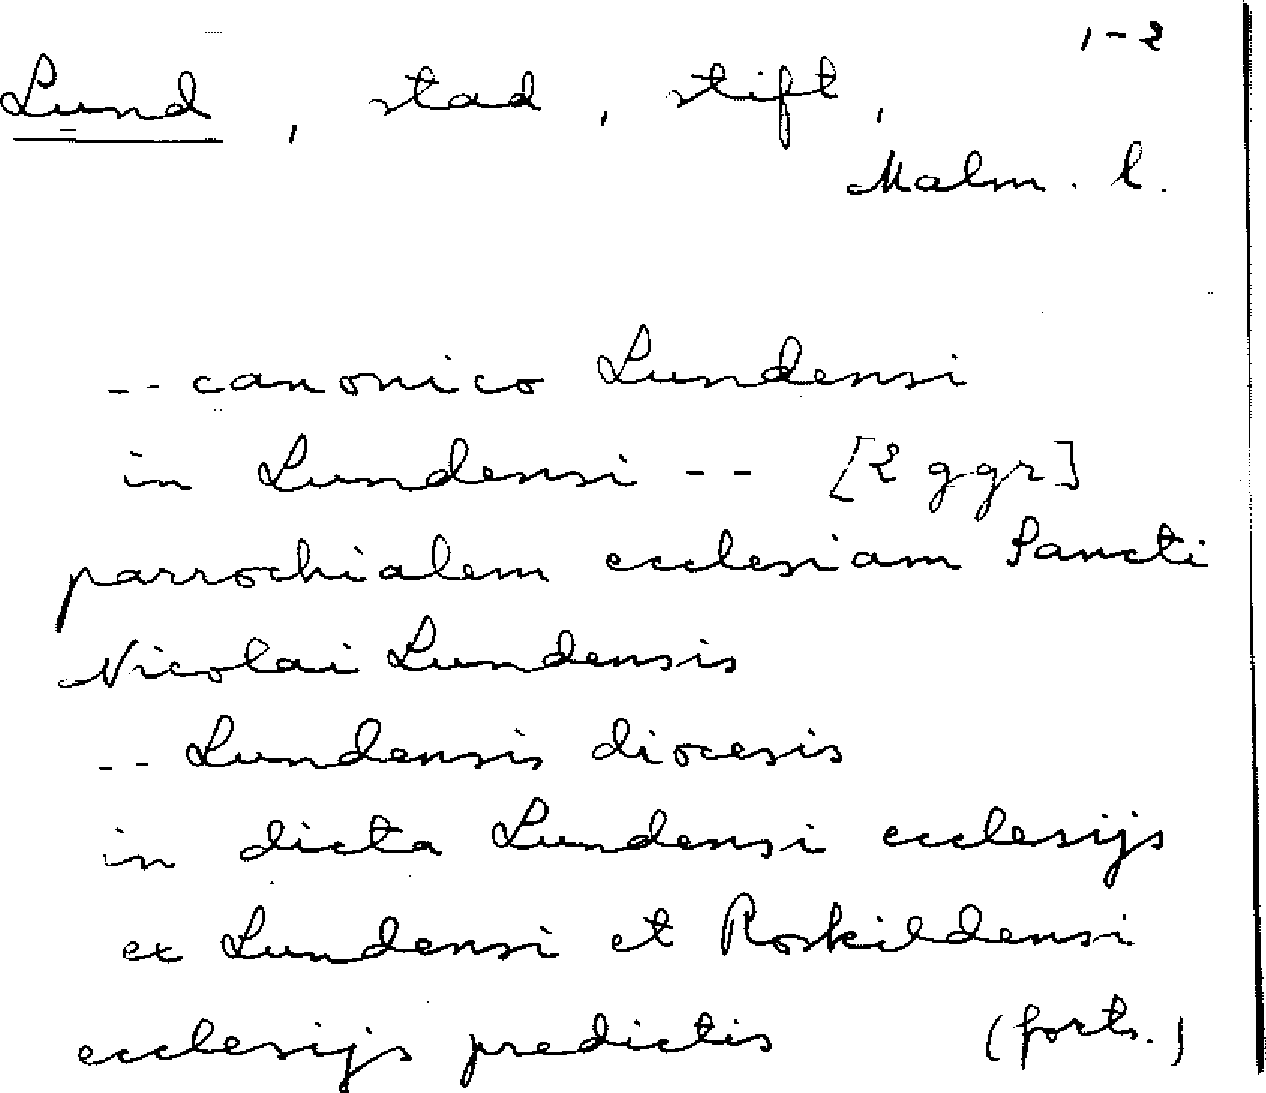 1-2
Lund, stad, stift,
Malm. l.
-- canonico Lundensi
in Lundensi -- [2 ggr]
parrochialem ecclesiam Sancti
Nicolai Lundensis
-- Lundensis diocesis
in dicta Lundensi ecclesijs
ex Lundensi et Roskildensi
ecclesijs predictis (forts.)